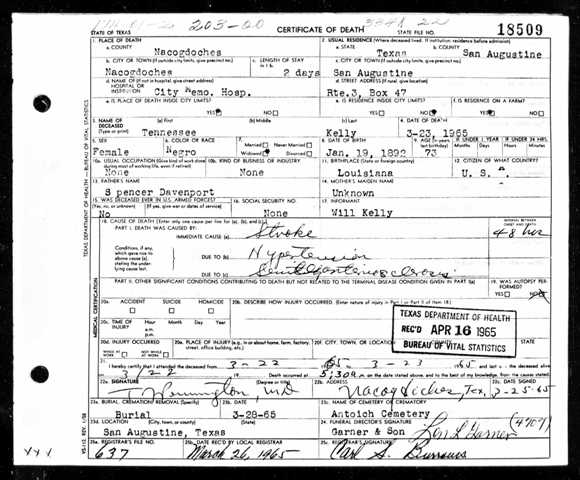 203-00
STATE OF TEXAS
CERTIFICATE OF DEATH
18509
1. PLACE OF DEATH
a. COUNTY
Nacogdoches
2. USUAL RESIDENCE (Where deceased lived. If institution: residence before admission)
a. STATE
Texas
b. COUNTY
San Augustine
b. CITY OR TOWN (If outside city limits, give precinct no.)
Nacogdoches
c. LENGTH OF STAY in 1 b.
2 days
c. CITY OR TOWN (If outside city limits, give precinct no.)
San Augustine
d. NAME OF (If not in hospital, give street address) HOSPITAL OR INSTITUTION
City Memo. Hosp.
d. STREET ADDRESS (If rural, give location)
Rte.3, Box 47
e. IS PLACE OF DEATH INSIDE CITY LIMITS?
YES NO
e. IS RESIDENCE INSIDE CITY LIMITS?
YES NO
f. IS RESIDENCE ON A FARM?
YES NO
3. NAME OF DECEASED (Type or print)
(a) First
Tennessee
(b) Middle
(c) Last
Kelly
4. DATE OF DEATH
3-23, 1965
5. SEX
Female
6. COLOR OR RACE
Negro
7. Married Never Married
Widowed Divorced
8. DATE OF BIRTH
Jan. 19, 1892
9. AGE (In years last birthday)
73
IF UNDER 1 YEAR
IF UNDER 24 HRS.
10a. USUAL OCCUPATION (Give kind of work done
None
10b. KIND OF BUSINESS OR INDUSTRY
None
11. BIRTHPLACE (State or foreign country)
Louisiana
12. CITIZEN OF WHAT COUNTRY?
U. S. A.
13. FATHER'S NAME
Spencer Davenport
14. MOTHER'S MAIDEN NAME
Unknown
15. WAS DECEASED EVER IN U.S. ARMED FORCES?
(Yes, no, or unknown) (If yes, give war or dates of service)
No
16. SOCIAL SECURITY NO.
None
17. INFORMANT
Will Kelly
18. CAUSE OF DEATH [Enter only one cause per line for (a), (b), and (c).]
PART I. DEATH WAS CAUSED BY:
IMMEDIATE CAUSE (a)
Stroke
INTERVAL BETWEEN ONSET AND DEATH
48 hrs
Conditions, if any, which gave rise to above cause (a), stating the underlying cause last.
DUE TO (b)
Hypertension
DUE TO (c)
PART II. OTHER SIGNIFICANT CONDITIONS CONTRIBUTING TO DEATH BUT NOT RELATED TO THE TERMINAL DISEASE CONDITION GIVEN IN PART I(a)
19. WAS AUTOPSY PERFORMED?
YES NO
20a. ACCIDENT SUICIDE HOMICIDE
20b. DESCRIBE HOW INJURY OCCURRED. (Enter nature of injury in Part I or Part II of item 18)
20c. TIME OF INJURY
Hour Month Day Year
a.m.
p.m.
TEXAS DEPARTMENT OF HEALTH
REC'D APR 16 1965
BUREAU OF VITAL STATISTICS
20d. INJURY OCCURRED
WHILE AT WORK NOT WHILE AT WORK
20e. PLACE OF INJURY (e.g., in or about home, farm, factory, street, office building, etc.)
20f. CITY, TOWN, OR LOCATION
21. I hereby certify that I attended the deceased from
3-22 65 3-23 65
Death occurred at
on the date stated above, and to the best of my knowledge, from the causes stated.
22a. SIGNATURE
(Degree or title)
M.D.
22b. ADDRESS
Nacogdoches, Tex,
22c. DATE SIGNED
3-25-65
23a. BURIAL, CREMATION, REMOVAL (Specify)
Burial
23b. DATE
3-28-65
23c. NAME OF CEMETERY OR CREMATORY
Antoich Cemetery
23d. LOCATION (City, town, or county) (State)
San Augustine, Texas
24. FUNERAL DIRECTOR'S SIGNATURE
Garner & Son
(4707)
25a. REGISTRAR'S FILE NO.
637
25b. DATE REC'D BY LOCAL REGISTRAR
March 26, 1965
25c. REGISTRAR'S SIGNATURE
Carl S. Burrows
TEXAS DEPARTMENT OF HEALTH — BUREAU OF VITAL STATISTICS
MEDICAL CERTIFICATION